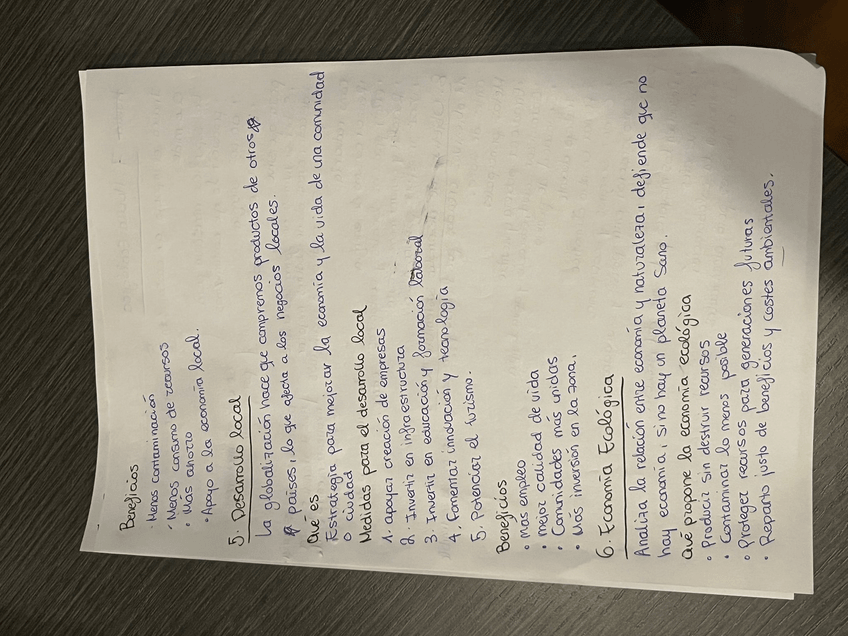 Beneficios
· Menos contaminación
• Menos consumo de recursos
• Mas ahorro
• Apoyo a la economía local.
5. Desarrollo local
La globalización hace que compremos productos de otros
países, lo que afecta a los negocios locales.
Qué es
Estrategia para mejorar la economía y la vida de una comunidad
o ciudad
Medidas para el desarrollo local
1. apoyar creación de empresas
2. Invertir en infraestructura
3. Invertir en educación y formación laboral
4. Fomentar innovación y tecnología
5. Potenciar el turismo.
Beneficios
• Mas empleo
• mejor calidad de vida
• Comunidades mas unidas
• Más inversión en la zona.
6. Economía Ecológica
Analiza la relación entre economía y naturaleza, defiende que no
hay economía, si no hay un planeta sano.
Qué propone la economía ecológica
• Producir sin destruir recursos
• Contaminar lo menos posible
• Proteger recursos para generaciones futuras
• Reparto justo de beneficios y costes ambientales.